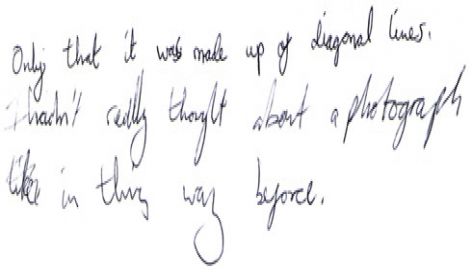 Only that it was made up of diagonal lines.
I hadn't really thought about a photograph
like in this way before.